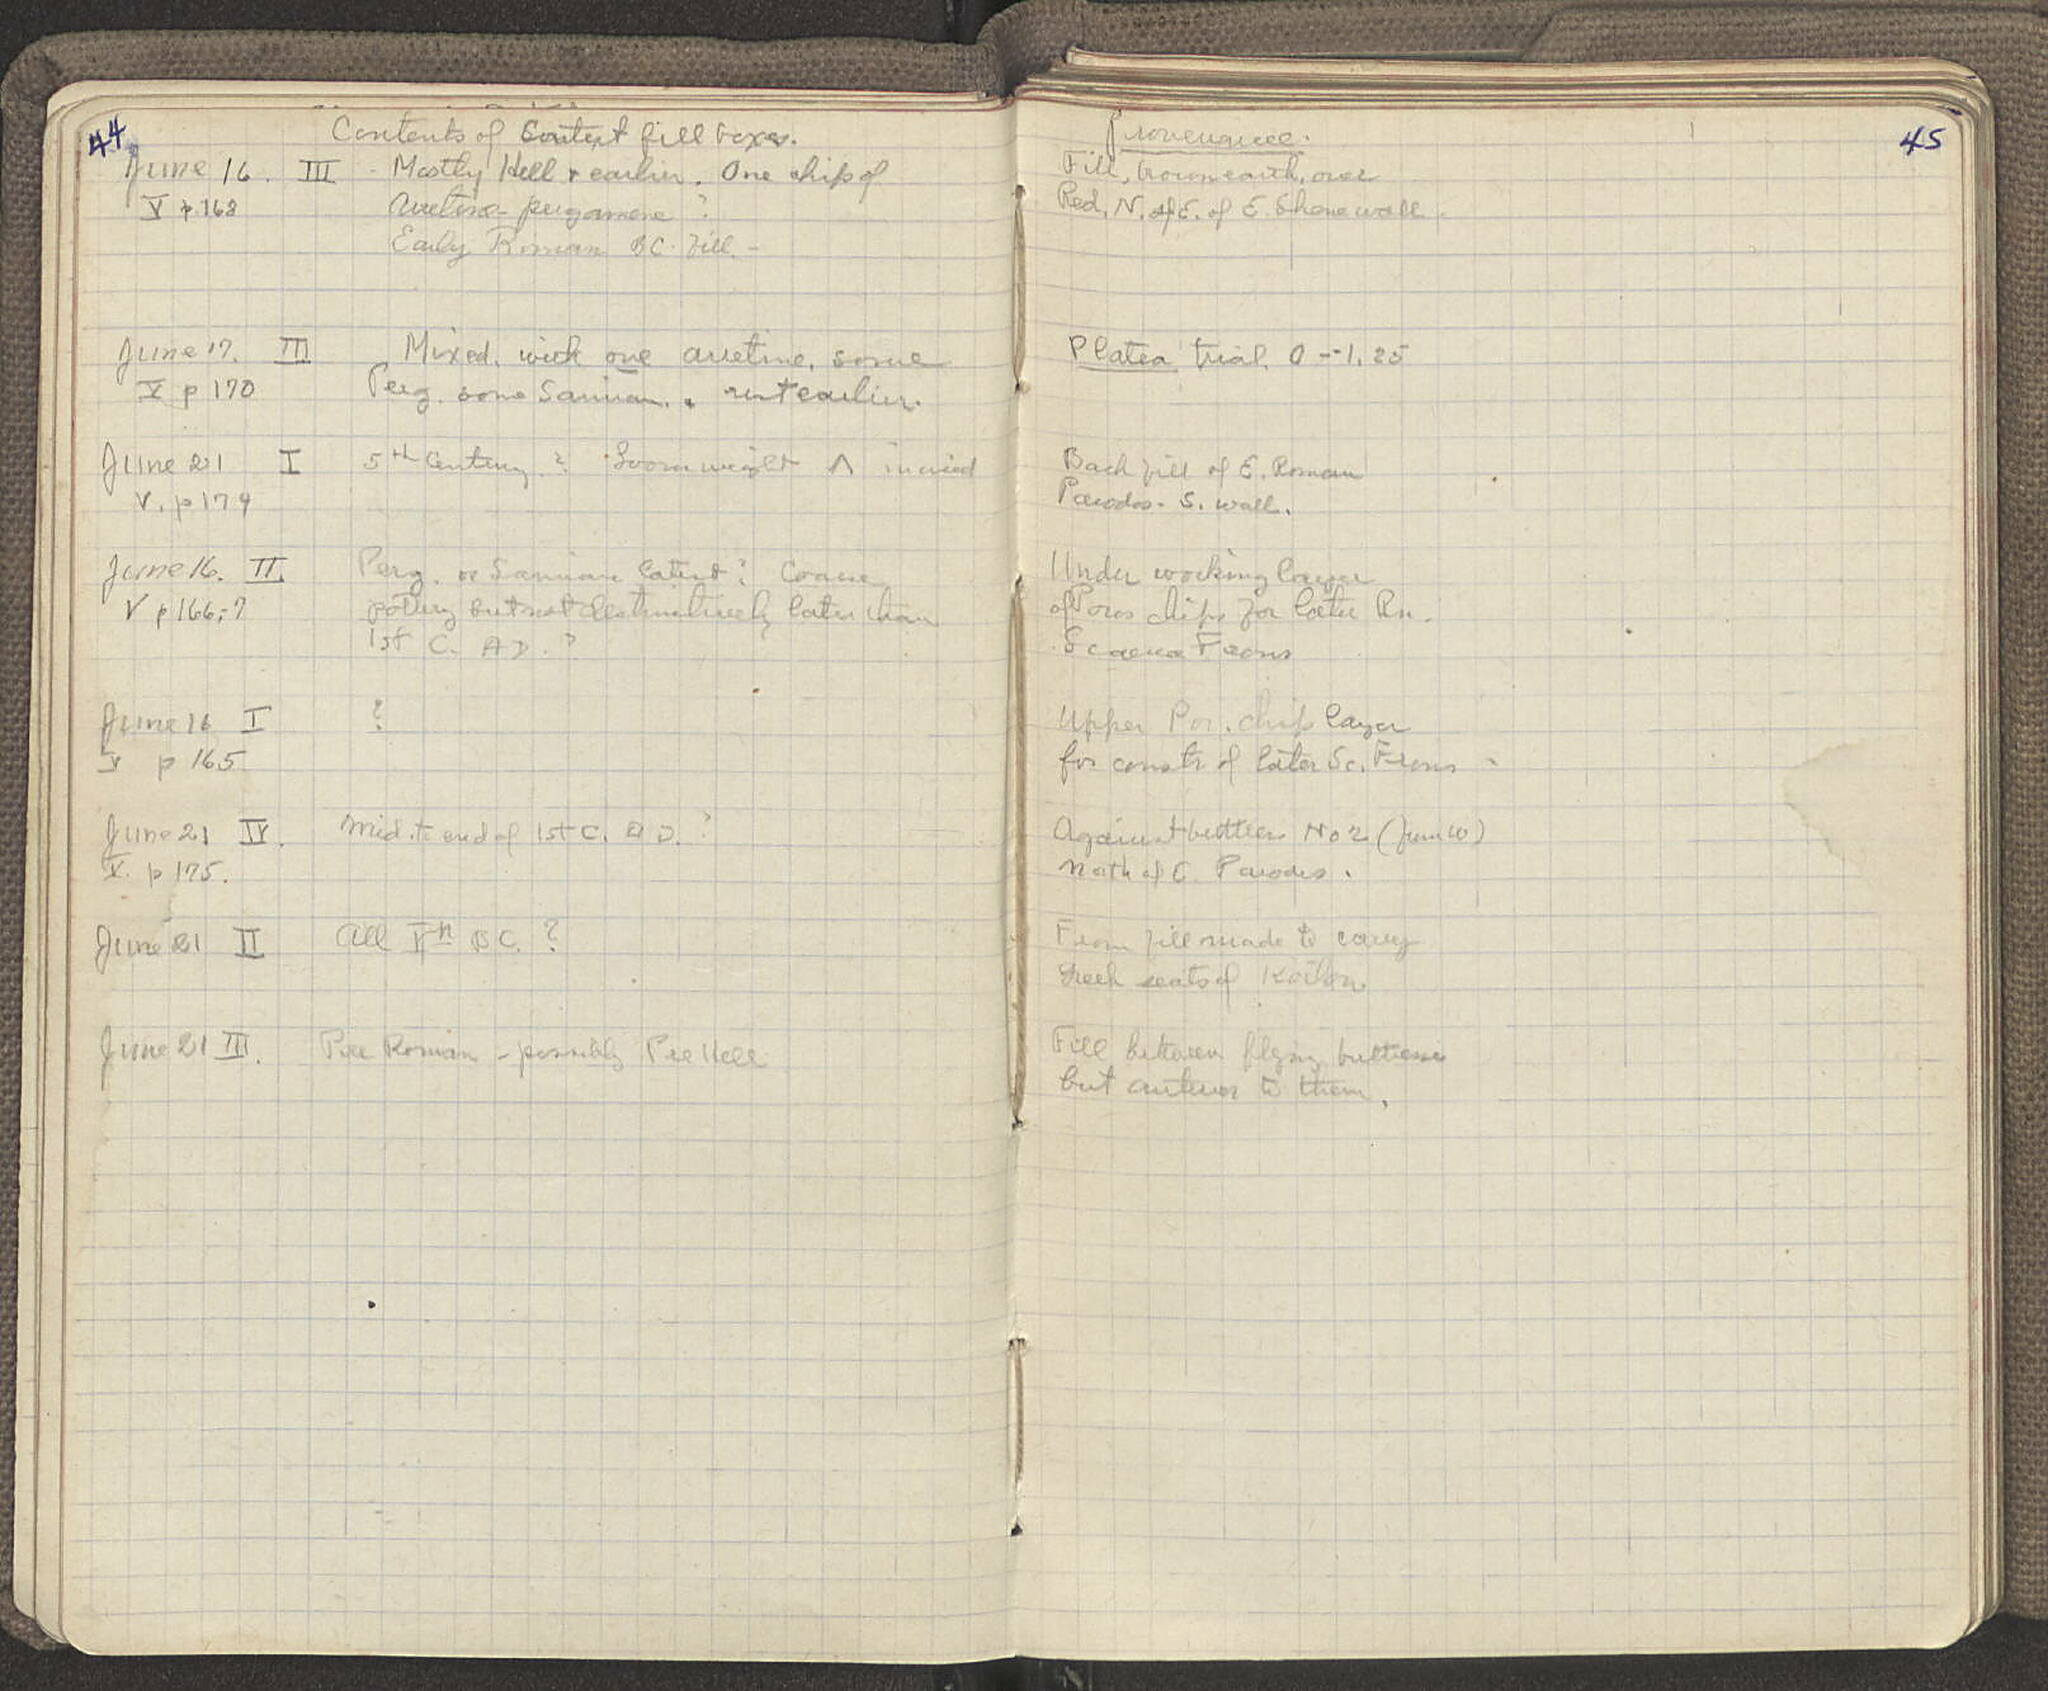 44
Contents of Context fill boxes.
June 16. III - Mostly Hell & earlier. One chip of
V p.168 Aretine - pergamene ?
Early Roman BC. fill. -
June 17. III Mixed, with one aretine, some
V p 170 Perg. some Samian. & rest earlier.
June 21 I 5th Century ? Loomweight Λ incised
V. p 179
June 16. II. Perg. or Samian latest ? Coarse
V p 166,-7 pottery but not distinctively later than
1st C. AD. ?
June 16 I ?
V p 165
June 21 IV. Mid. to end of 1st C. AD. ?
V. p 175.
June 21 II All Vth BC. ?
June 21 III. Pre Roman - possibly Pre Hell
45
Provenience.
Fill, brown earth, over
Red, N. of E. of E. Skene wall.
Platea trial. 0 - -1.25
Back fill of E. Roman
Parodos - S. wall.
Under working layer
of Poros chips for later Rn.
Scaena Frons
Upper Por. chip layer
for constr of later Sc. Frons -
Against buttress No 2 (June 10)
North of E. Parodos.
From fill made to carry
Greek seats of Koilon
Fill between flying buttresses
but anterior to them.